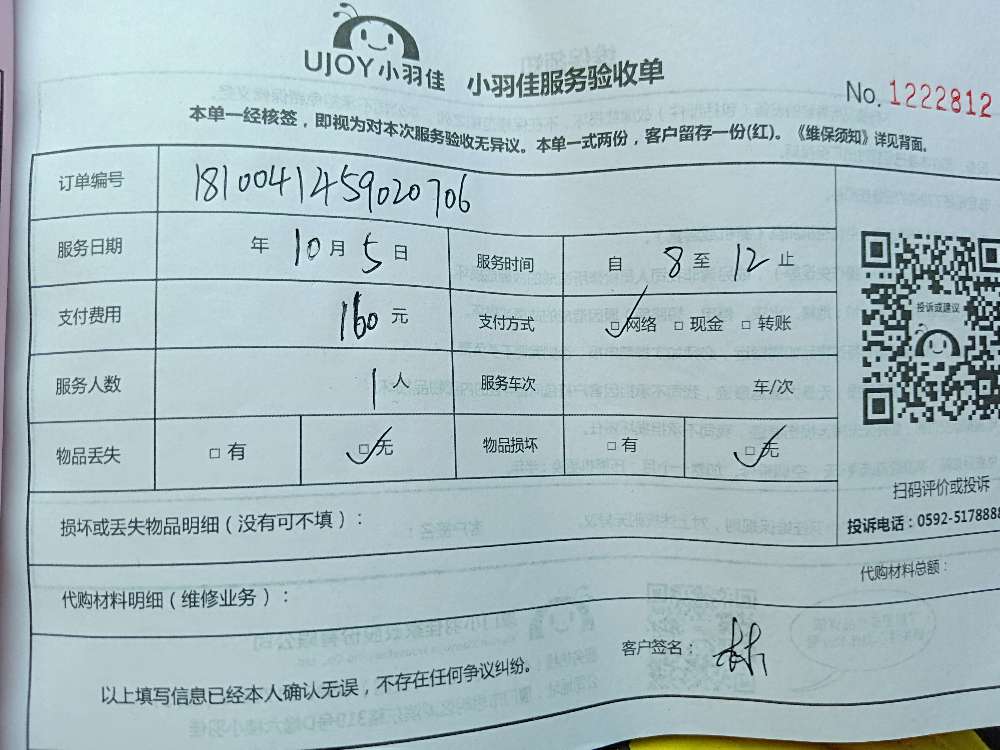 UJOY小羽佳 小羽佳服务验收单
No. 1222812
本单一经核签，即视为对本次服务验收无异议。本单一式两份，客户留存一份(红)。《维保须知》详见背面。
订单编号 1810041459020706
服务日期 年 10 月 5 日 服务时间 自 8 至 12 止
支付费用 160 元 支付方式 ☑网络 □现金 □转账
服务人数 1 人 服务车次 车/次
物品丢失 □有 ☑无 物品损坏 □有 ☑无
投诉或建议
扫码评价或投诉
投诉电话：0592-5178888
损坏或丢失物品明细（没有可不填）：
代购材料明细（维修业务）：
代购材料总额：
客户签名：
以上填写信息已经本人确认无误，不存在任何争议纠纷。